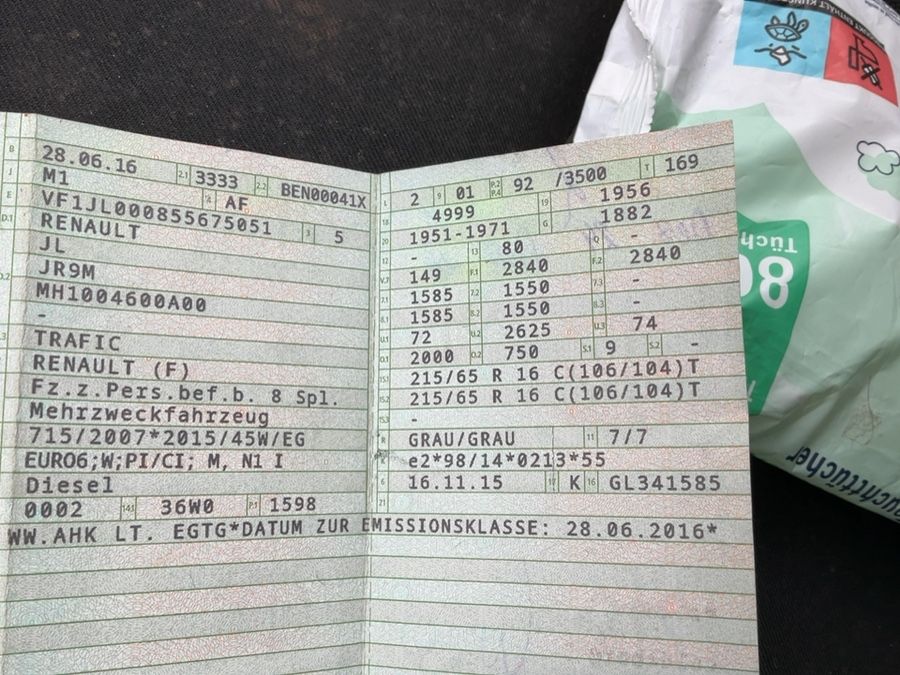 B 28.06.16 2.1 3333 2.2 BEN00041X
J M1 4 AF
E VF1JL000855675051 3 5
D.1 RENAULT
JL
D.2 JR9M
MH1004600A00
-
D.3 TRAFIC
RENAULT (F)
Fz.z.Pers.bef.b. 8 Spl.
Mehrzweckfahrzeug
715/2007*2015/45W/EG
EURO6;W;PI/CI; M, N1 I
Diesel
0002 14.1 36W0 P.1 1598
WW.AHK LT. EGTG*DATUM ZUR EMISSIONSKLASSE: 28.06.2016*
L 2 9 01 P.2 P.4 92 /3500 T 169
18 4999 19 1956
20 1951-1971 G 1882
12 - 13 80 Q -
V.7 149 F.1 2840 F.2 2840
7.1 1585 7.2 1550 7.3 -
8.1 1585 8.2 1550 8.3 -
U.1 72 U.2 2625 U.3 74
O.1 2000 O.2 750 S.1 9 S.2 -
15.1 215/65 R 16 C(106/104)T
15.2 215/65 R 16 C(106/104)T
15.3 -
R GRAU/GRAU 11 7/7
K e2*98/14*0213*55
6 16.11.15 17 K 16 GL341585
21
80
Tüch